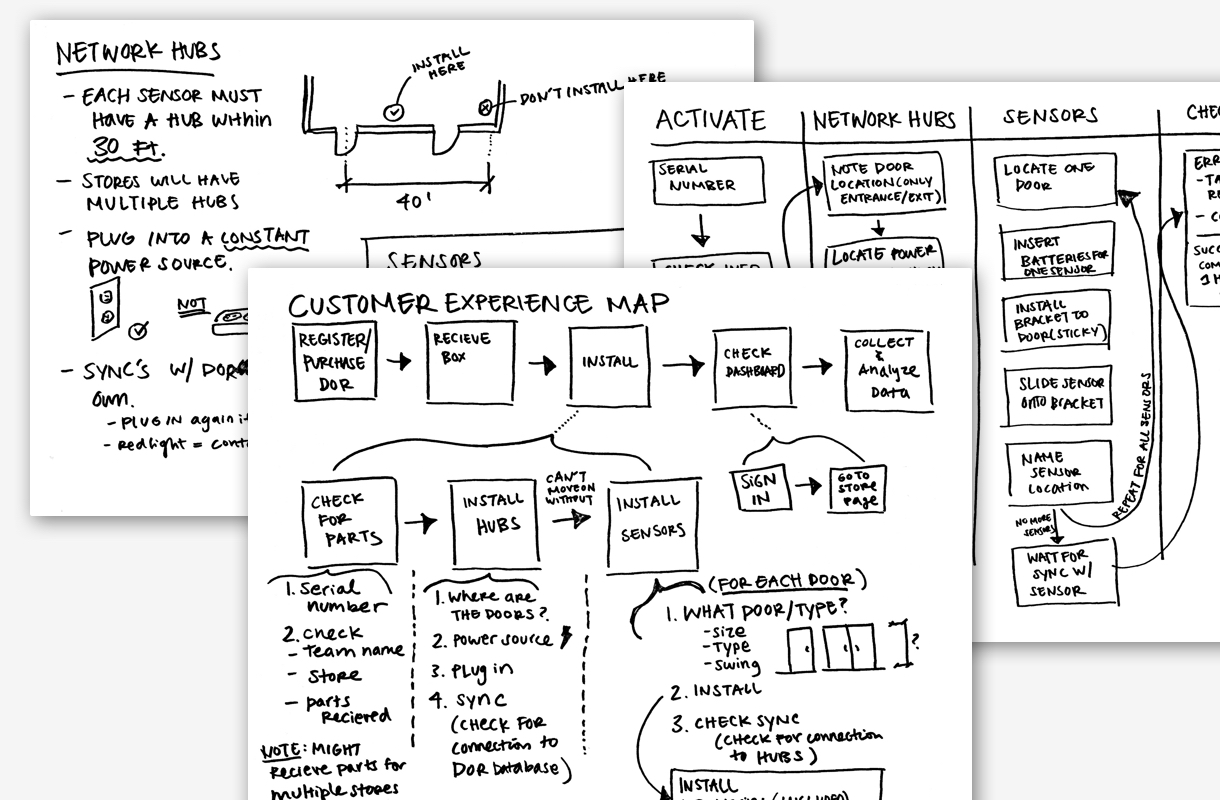 NETWORK HUBS
- EACH SENSOR MUST
HAVE A HUB WITHIN
30 Ft.
- STORES WILL HAVE
MULTIPLE HUBS
- PLUG INTO A CONSTANT
POWER SOURCE.
NOT
- SYNC'S W/ DOR
OWN.
- PLUG IN again
- Redlight =
INSTALL
HERE
DON'T INSTALL HERE
40'
SENSORS
ACTIVATE
SERIAL
NUMBER
CHECK INFO
NETWORK HUBS
NOTE DOOR
LOCATION (ONLY
ENTRANCE/EXIT)
LOCATE POWER
SENSORS
LOCATE ONE
DOOR
INSERT
BATTERIES FOR
ONE SENSOR
INSTALL
BRACKET TO
DOOR (STICKY)
SLIDE SENSOR
ONTO BRACKET
NAME
SENSOR
Location
NO MORE
SENSORS
REPEAT FOR ALL SENSORS
WAIT FOR
SYNC W/
SENSOR
CUSTOMER EXPERIENCE MAP
REGISTER/
PURCHASE
DOR
RECIEVE
BOX
INSTALL
CHECK
DASHBOARD
COLLECT
&
Analyze
Data
CHECK
FOR
PARTS
INSTALL
HUBS
CAN'T
MOVE ON
WITHOUT
INSTALL
SENSORS
SIGN
IN
GO TO
STORE
Page
1. Serial
number
2. Check
- Team name
- Store
- parts
Recieved
NOTE: MIGHT
Recieve parts for
multiple stores
1. Where are
THE DOORS?
2. Power source
3. Plug in
4. Sync
(CHECK FOR
connection to
DOR Database)
(FOR EACH DOOR)
1. WHAT DOOR/TYPE?
- size
- Type
- swing
?
2. INSTALL
3. CHECK SYNC
(check for connection
to HUBS)
INSTALL